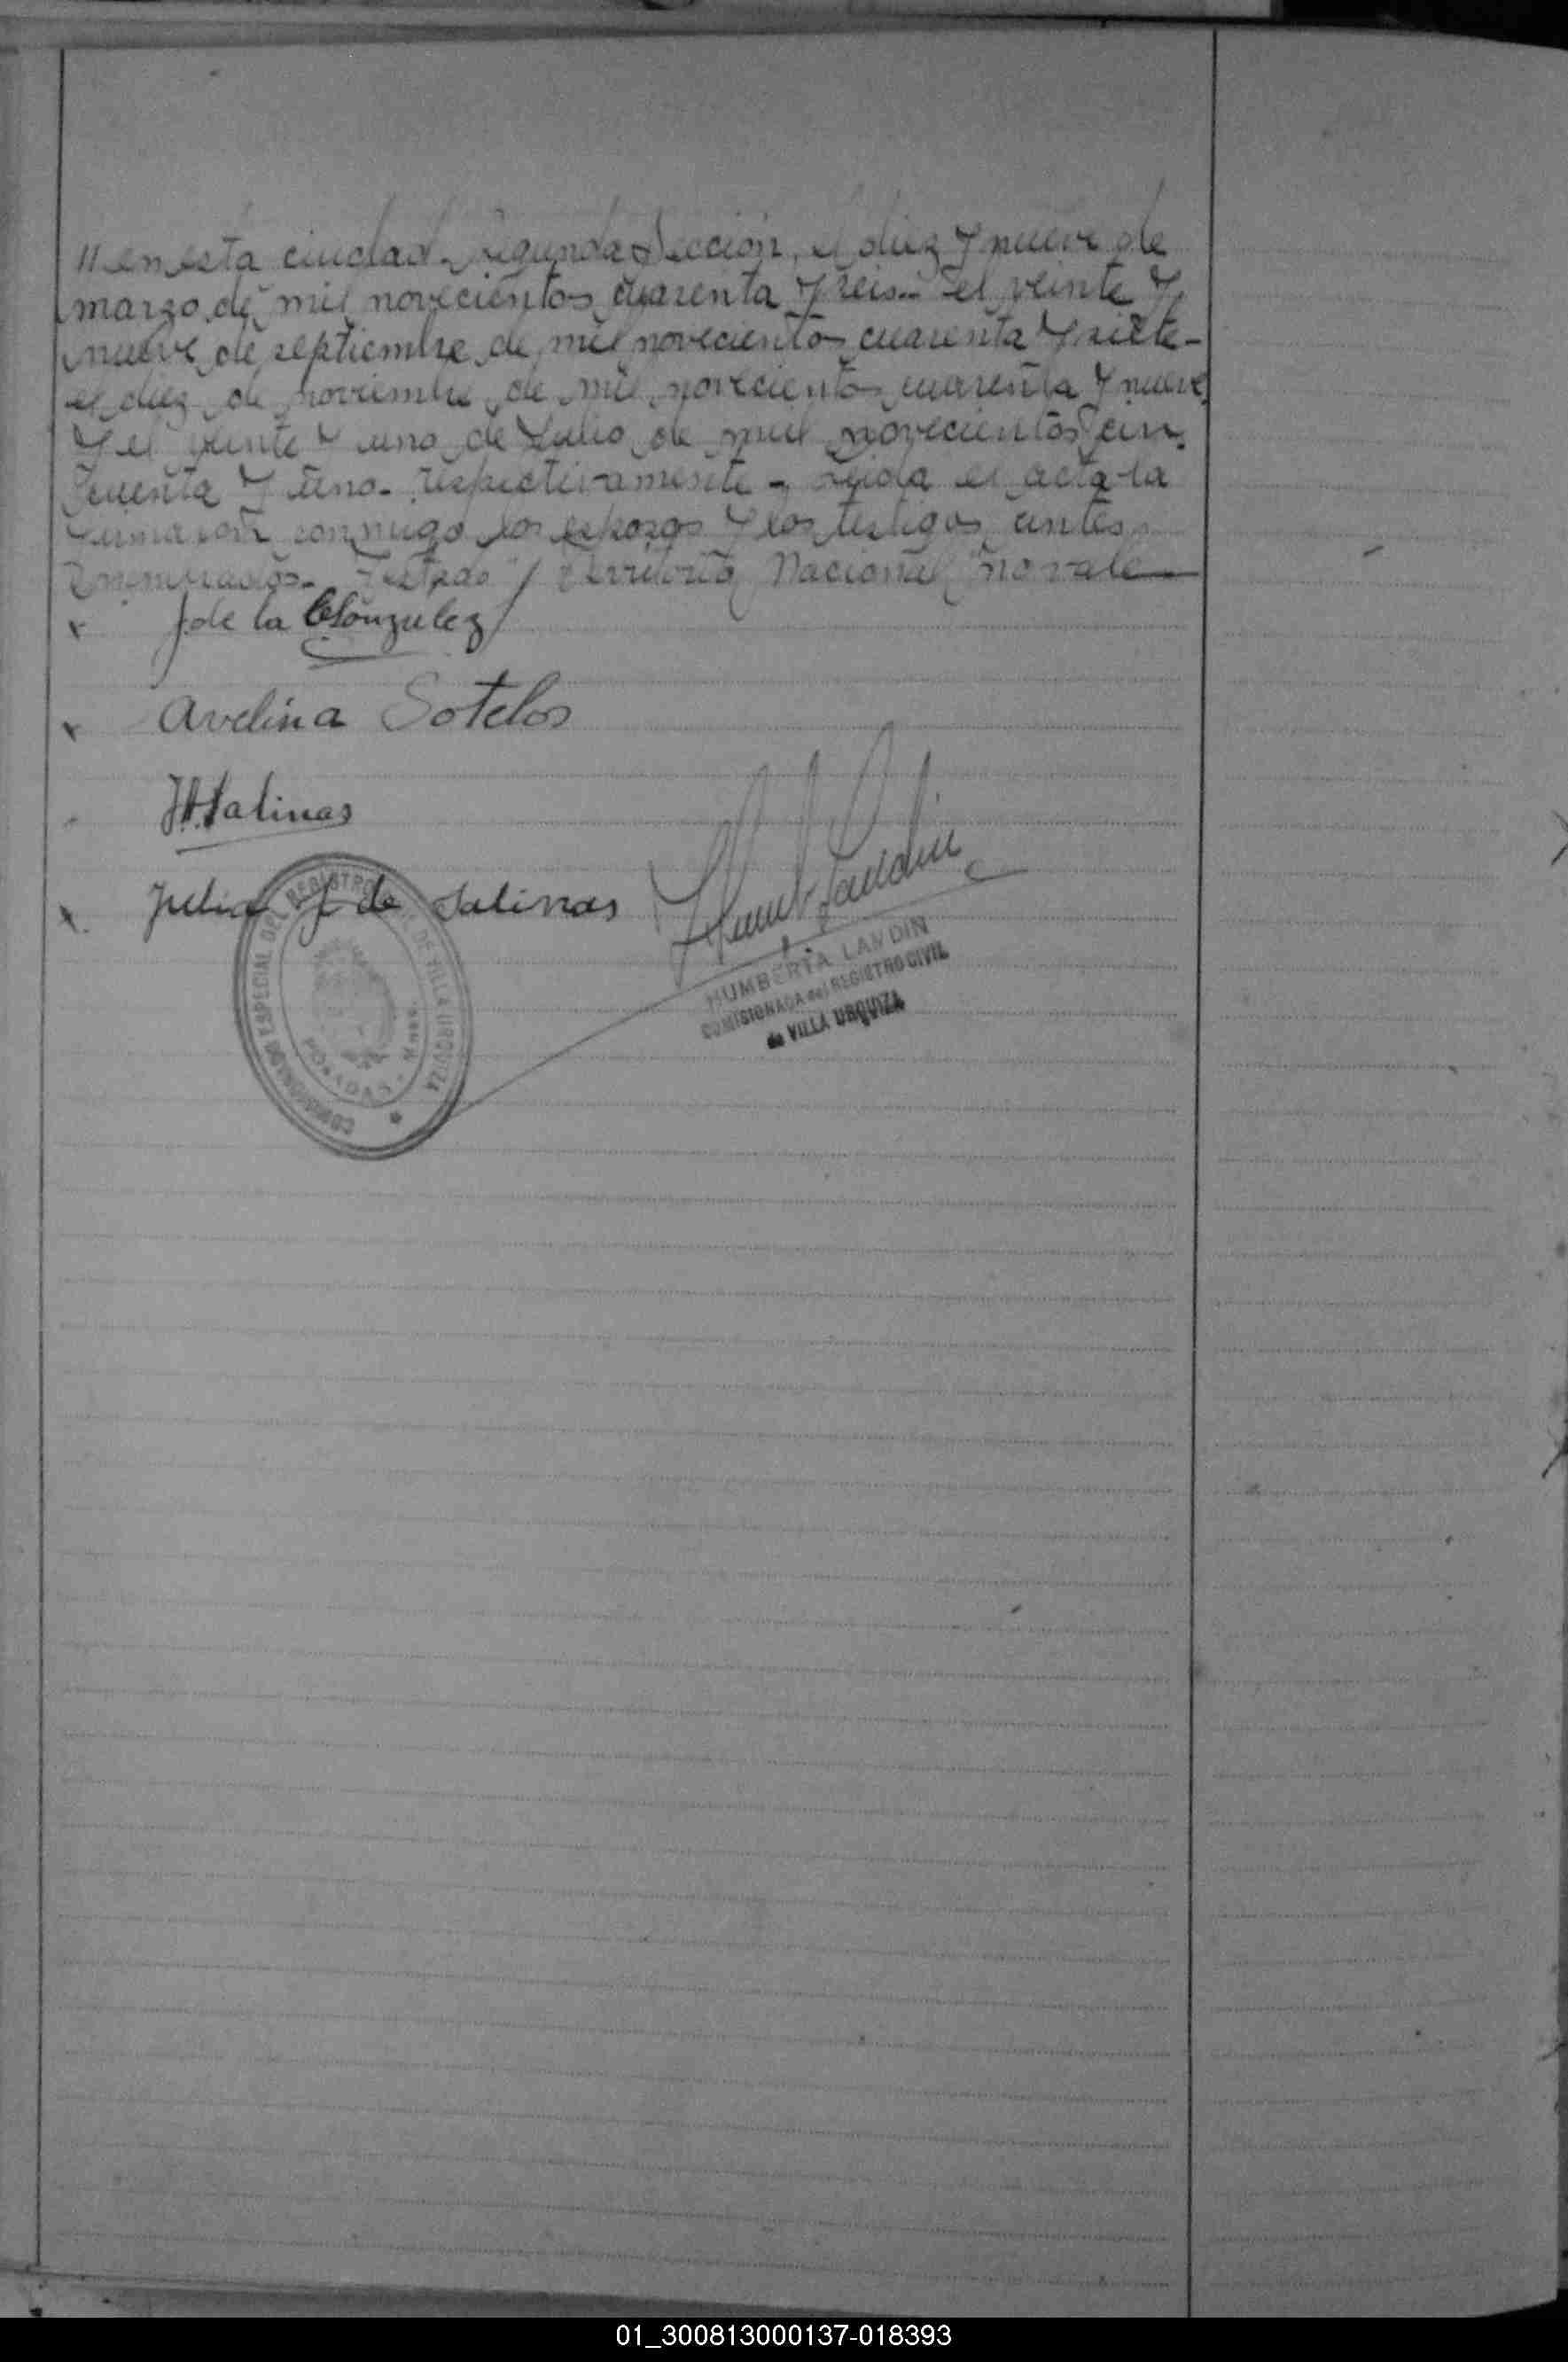 // en esta ciudad. Segunda Sección, el diez y nueve de
marzo de mil novecientos cuarenta y seis.- el veinte y
nueve de septiembre de mil novecientos cuarenta y siete-
el diez de noviembre de mil novecientos cuarenta y nueve,
y el veinte y uno de Julio de mil novecientos cin-
cuenta y uno. respectivamente - Leida el acta la
firmaron conmigo los esposos y los testigos antes
nominados.- Testado "/ territorio Nacional" no vale
x J. de la C González
x Avelina Sotelos
J.A. Salinas
x Julia J de Salinas
HUMBERTA LANDIN
COMISIONADA del REGISTRO CIVIL
de VILLA URQUIZA
COMISIONADO ESPECIAL DEL REGISTRO CIVIL DE VILLA URQUIZA
POSADAS - Mnes.
01_300813000137-018393